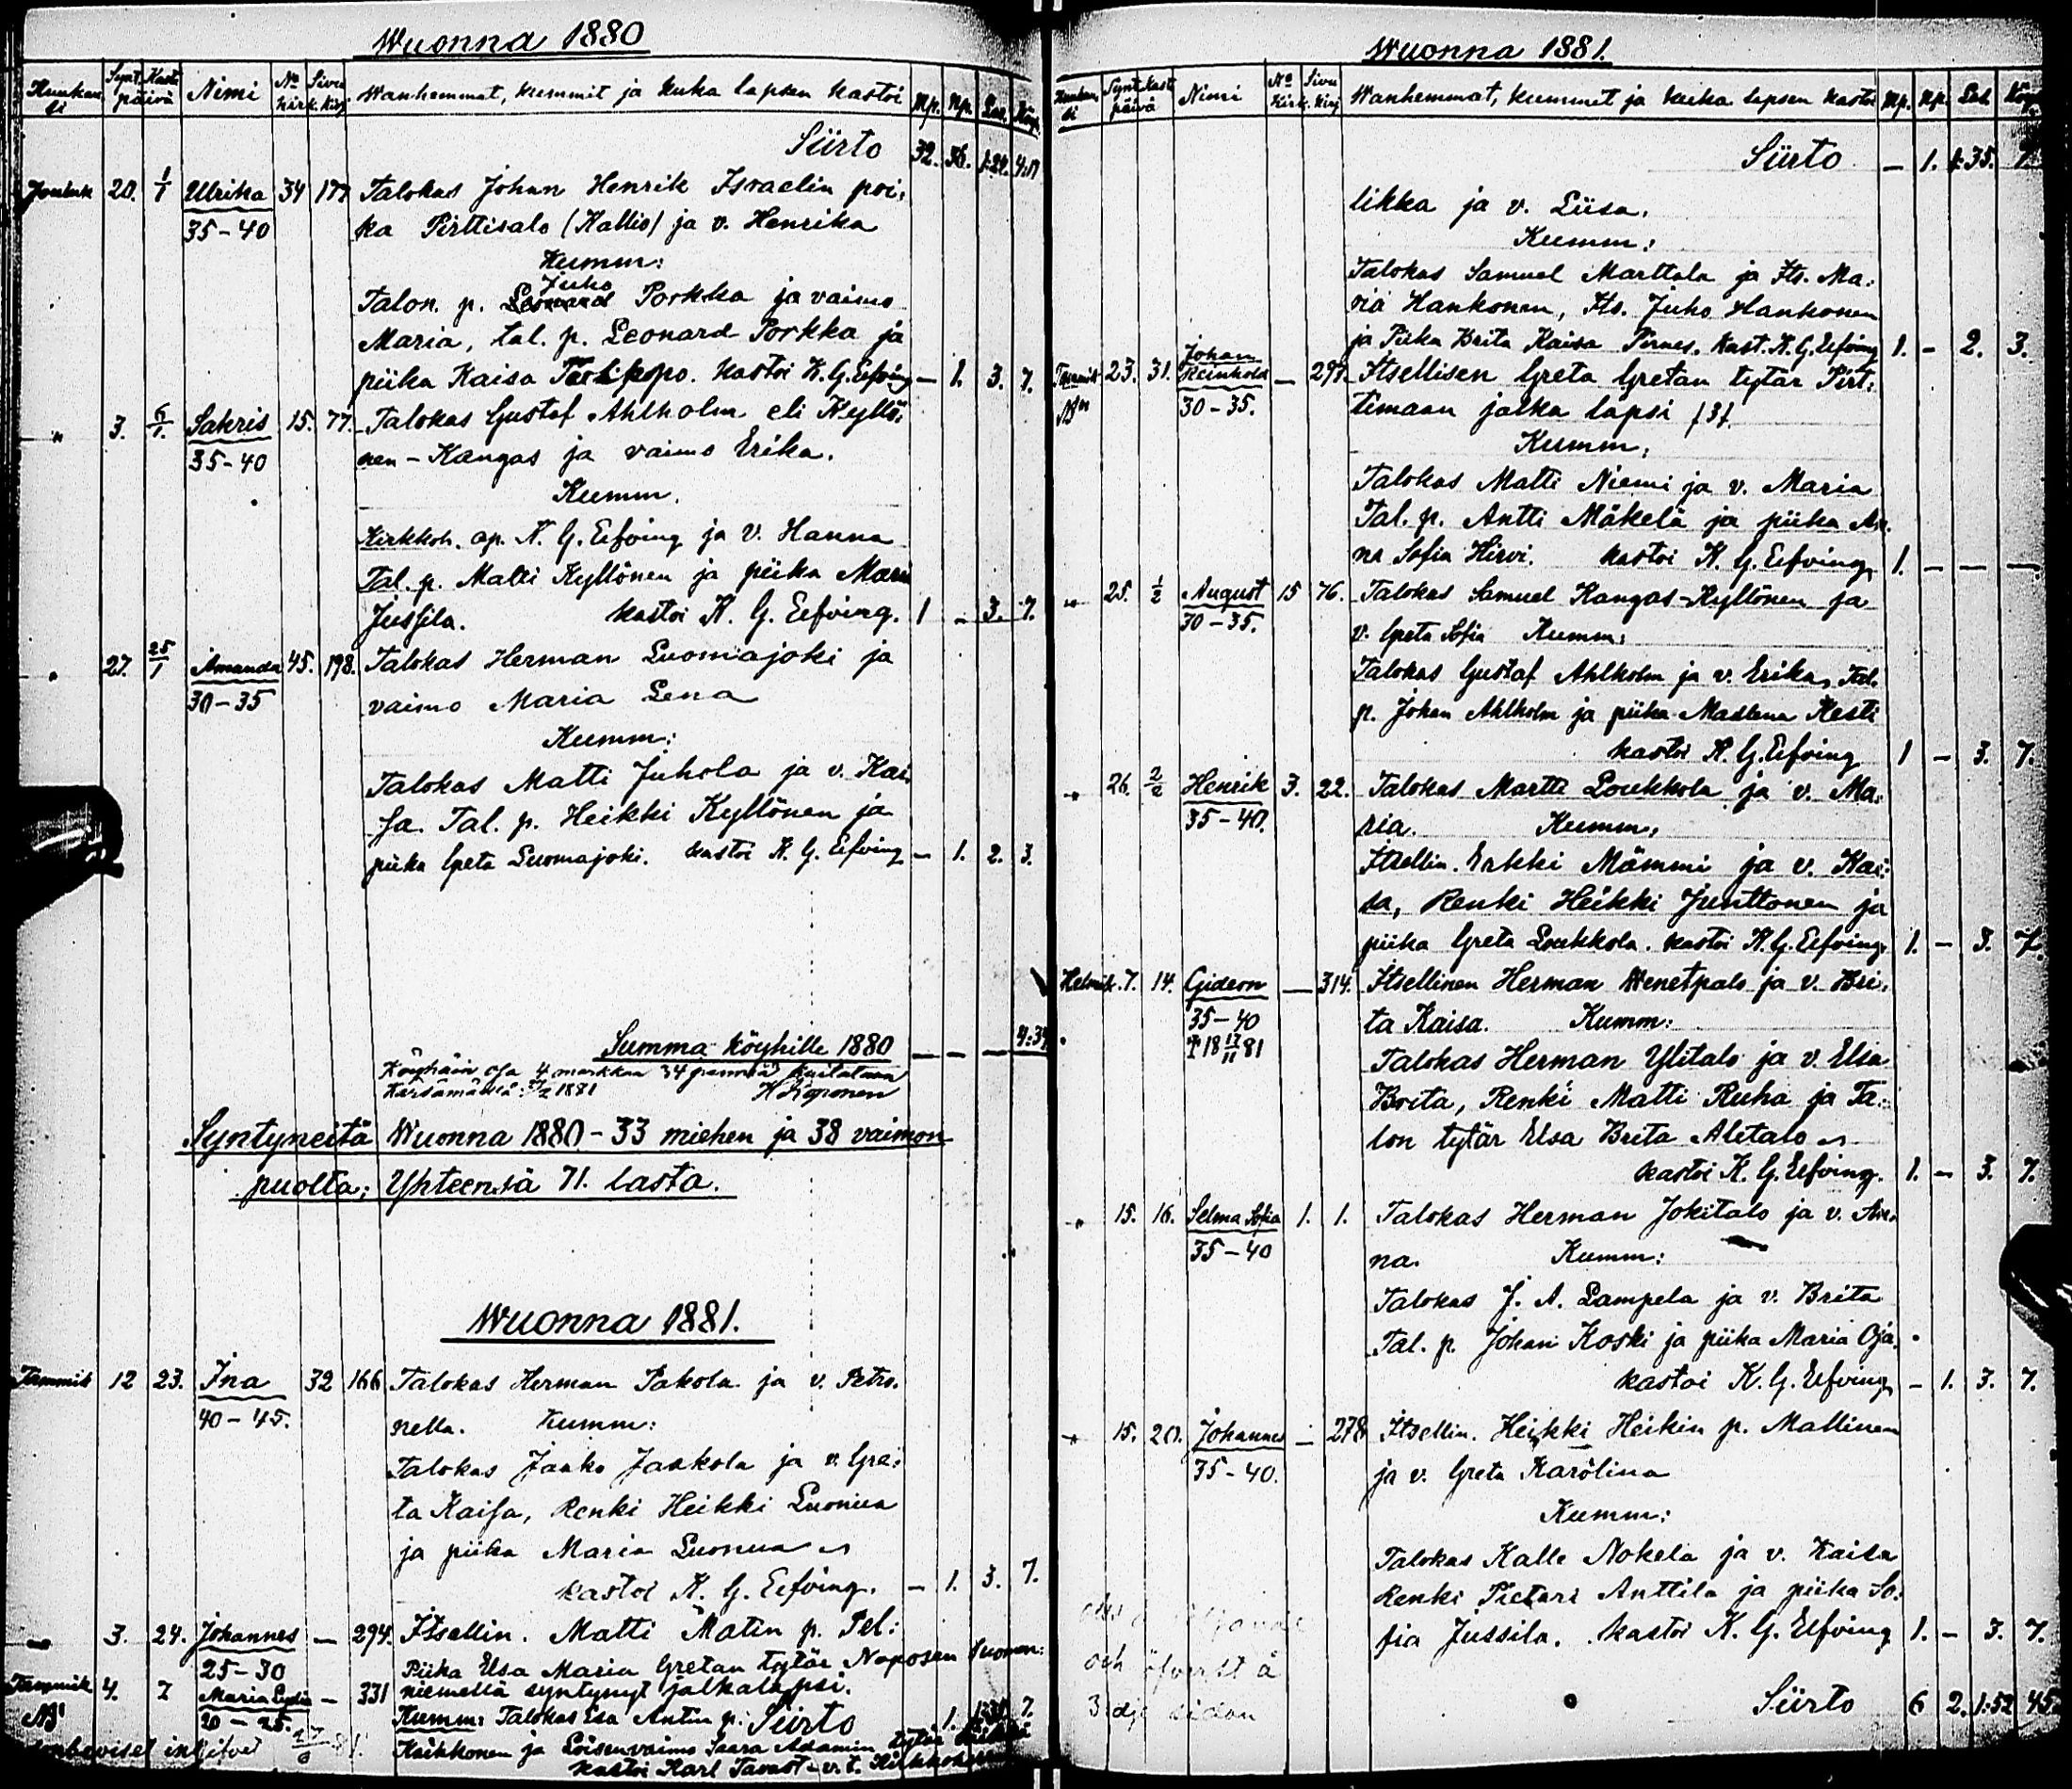 Wuonna 1880
Kuukau Synt. Kast. Nimi No Sivu Wanhemmat, kummit ja kuka lapsen kastoi Mp. Np. Las. Köyh.
si päivä kirk. kirj.
Siirto 32. 36. 4:17
Jouluk 20. 1/1 Ulrika 34 177 Talokas Johan Henrik Israelin poi:
35-40 ka Pirttisalo (Kallio) ja v. Henrika
Kumm:
Juho
Talon. p. Leonard Porkka ja vaimo
Maria, tal. p. Leonard Porkka ja
piika Kaisa kastoi K. G. Eefving - 1. 3. 7.
" 3. 6/1. Sakris 15. 77. Talokas Gustaf Ahlholm eli Kyllö:
35-40 nen - Kangas ja vaimo Erika.
Kumm.
Kirkkoh. ap. K. G. Eefving ja v. Hanna
Tal. p. Matti Kyllönen ja piika Maria
Jussila. kastoi K. G. Eefving. 1 - 3. 7.
" 27. 25/1 Amanda 45. 198. Talokas Herman Luomajoki ja
30-35 vaimo Maria Lena
Kumm:
Talokas Matti Juhola ja v. Kai:
sa. Tal. p. Heikki Kyllönen ja
piika Greta Luomajoki. kastoi K. G. Eefving - 1. 2. 3.
Summa köyhille 1880 - - - 4:34
Köyhäin osa 4 markkaa 34 penniä kuitataan
Kärsämäellä 1881 K Koponen
Syntyneitä Wuonna 1880 - 33 miehen ja 38 vaimon
puolta; Yhteensä 71. lasta.
Wuonna 1881.
Tammik 12 23. Ina 32 166 Talokas Herman Pakola ja v. Petro:
40-45. nella. Kumm:
Talokas Jaako Jaakola ja v. Gre:
ta Kaisa, Renki Heikki Luonua
ja piika Maria Luonua
kastoi K. G. Eefving. - 1. 3. 7.
" 3. 24. Johannes - 294. Itsellin. Matti Matin p. Pel:
25-30 Piika Elsa Maria Gretan tytär Noposen Suomen:
Tammik 4. 7 Maria Lydia - 331 niemellä syntynyt jalkalapsi.
20-25. Kumm: Talokas Esa Antin p. Siirto 1. 1:35 7.
Kaikkonen ja Loisenvaimo Saara Adamin tytär
kastoi Karl Tavast v. t. Kirkkoherra
Wuonna 1881.
Kuukau Synt. kast Nimi No Sivu Wanhemmat, kummit ja kuka lapsen kastoi Mp. Np. Las. Köyh.
si päivä Kirk. Kirj
Siirto - 1. 1:35. 7.
likka ja v. Liisa.
Kumm:
Talokas Samuel Marttala ja Its. Ma:
ria Hankonen, Its. Juho Hankonen
ja Piika Brita Kaisa Pirnes. Kast. K. G. Eefving 1. - 2. 3.
Tammik 23. 31. Johan Reinhold - 297. Itsellisen Greta Gretan tytar Pirt:
30-35. timaan jalka lapsi
Kumm.
Talokas Matti Niemi ja v. Maria
Tal. p. Antti Mäkelä ja piika An:
na Sofia Hirvi. kastoi K. G. Eefving 1. - - -
" 25. 1/2 August 15 76. Talokas Samuel Kangas-Kyllönen ja
30-35. v. Greta Sofia Kumm:
Talokas Gustaf Ahlholm ja v. Erika, Tal.
p. Johan Ahlholm ja piika Madlena Kesti
kastoi K. G. Eefving 1 - 3. 7.
" 26. 2/2 Henrik 3. 22. Talokas Martti Loukkola ja v. Ma:
35-40. ria. Kumm:
Itsellin. Erkki Mömmi ja v. Kai:
sa, Renki Heikki Junttonen ja
piika Greta Loukkola. kastoi K. G. Eefving. 1. - 3. 7.
Helmik. 7. 14. Gideon - 314. Itsellinen Herman Wenetpalo ja v. Bri:
35-40 ta Kaisa. Kumm:
† 18 17/11 81 Talokas Herman Ylitalo ja v. Elsa
Brita, Renki Matti Ruha ja Ta:
lon tytär Elsa Brita Alatalo
kastoi K. G. Eefving. 1. - 3. 7.
" 15. 16. Selma Sofia 1. 1. Talokas Herman Jokitalo ja v. An:
35-40 na. Kumm:
Talokas J. A. Lampela ja v. Brita
Tal. p. Johan Koski ja piika Maria Oja.
kastoi K. G. Eefving - 1. 3. 7.
" 15. 20. Johannes - 278 Itsellin. Heikki Heikin p. Mallinen
35-40. ja v. Greta Karolina
Kumm:
Talokas Kalle Nokela ja v. Kaisa
Renki Pietari Anttila ja piika So:
fia Jussila. kastoi K. G. Eefving 1. - 3. 7.
och öfverst å
3dje sidan Siirto 6 2. 1:52 45.